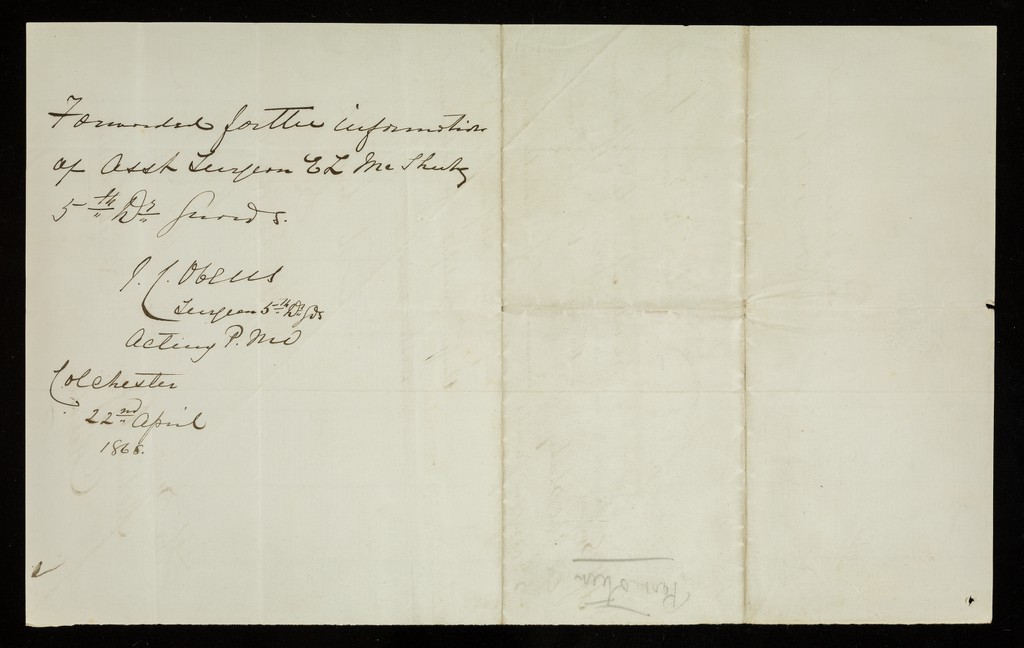 Forwarded for the information
of Asst Surgeon E L McSheehy
5th Dn Guards.
Surgeon 5th Dn Gds
Acting P. M O
Colchester
22nd April
186
Promotion